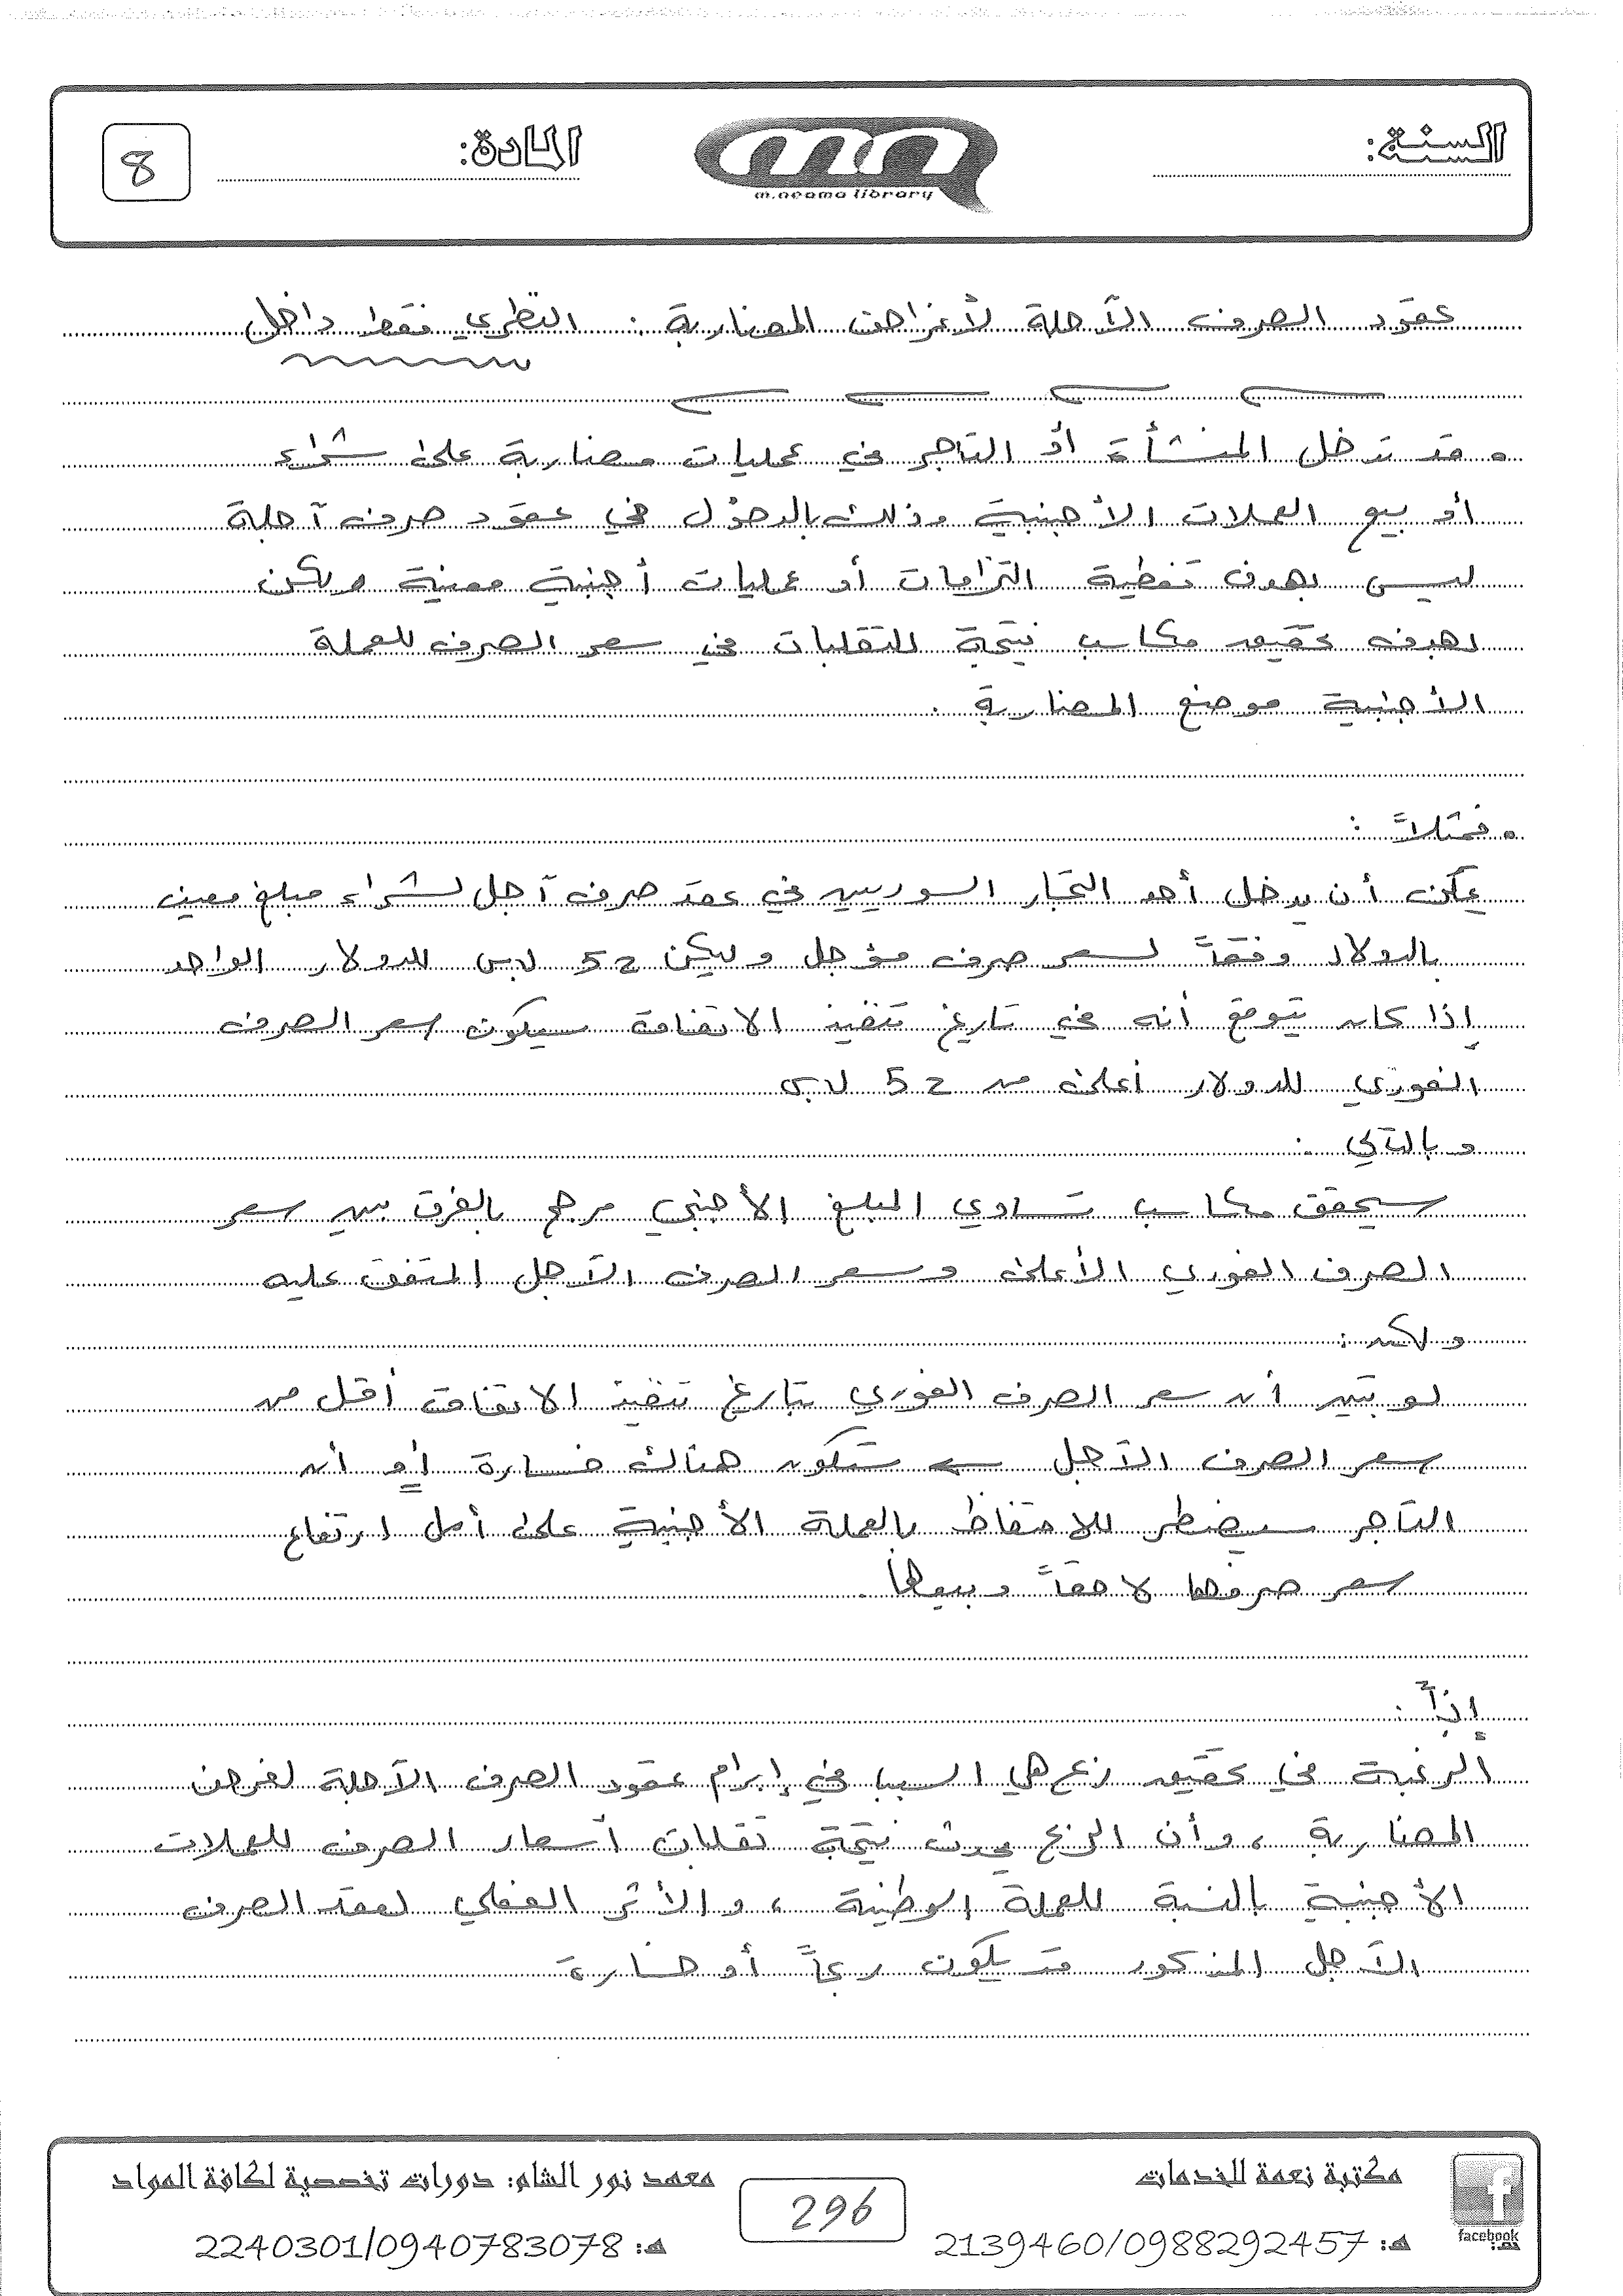 السنة:
m.neama library
المادة:
8
عقود الصرف الآجلة لأغراض المضاربة : النظري فقط داخل
• قد تدخل المنشأة أو التاجر في عمليات مضاربة على شراء
أو بيع العملات الأجنبية وذلك بالدخول في عقود صرف آجلة
ليس بهدف تغطية التزامات أو عمليات أجنبية معينة ولكن
بهدف تحقيق مكاسب نتيجة للتقلبات في سعر الصرف للعملة
الأجنبية موضع المضاربة .
• فمثلاً :
يمكن أن يدخل أحد التجار السوريين في عقد صرف آجل لشراء مبلغ معين
بالدولار وفقاً لسعر صرف مؤجل وليكن 52 ل.س للدولار الواحد
إذا كان يتوقع أنه في تاريخ تنفيذ الاتفاقة سيكون سعر الصرف
الفوري للدولار أعلى من 52 ل.س
وبالتالي :
سيحقق مكاسب تساوي المبلغ الأجنبي مرجح بالفرق بين سعر
الصرف الفوري الأعلى وسعر الصرف الآجل المتفق عليه
ولكن :
لو تبين أن سعر الصرف الفوري بتاريخ تنفيذ الاتفاقة أقل من
سعر الصرف الآجل ← ستكون هناك خسارة أو أن
التاجر سيضطر للاحتفاظ بالعملة الأجنبية على أمل ارتفاع
سعر صرفها لاحقاً وبيعها .
إذاً :
الرغبة في تحقيق ربح هي السبب في إبرام عقود الصرف الآجلة لغرض
المضاربة ، وأن الربح يحدث نتيجة تقلبات أسعار الصرف للعملات
الأجنبية بالنسبة للعملة الوطنية ، والأثر الفعلي لعقد الصرف
الآجل المذكور قد يكون ربحاً أو خسارة
facebook
مكتبة نعمة للخدمات
هـ: 2139460/0988292457
296
معهد نور الشام: دورات تخصصية لكافة المواد
هـ: 2240301/0940783078